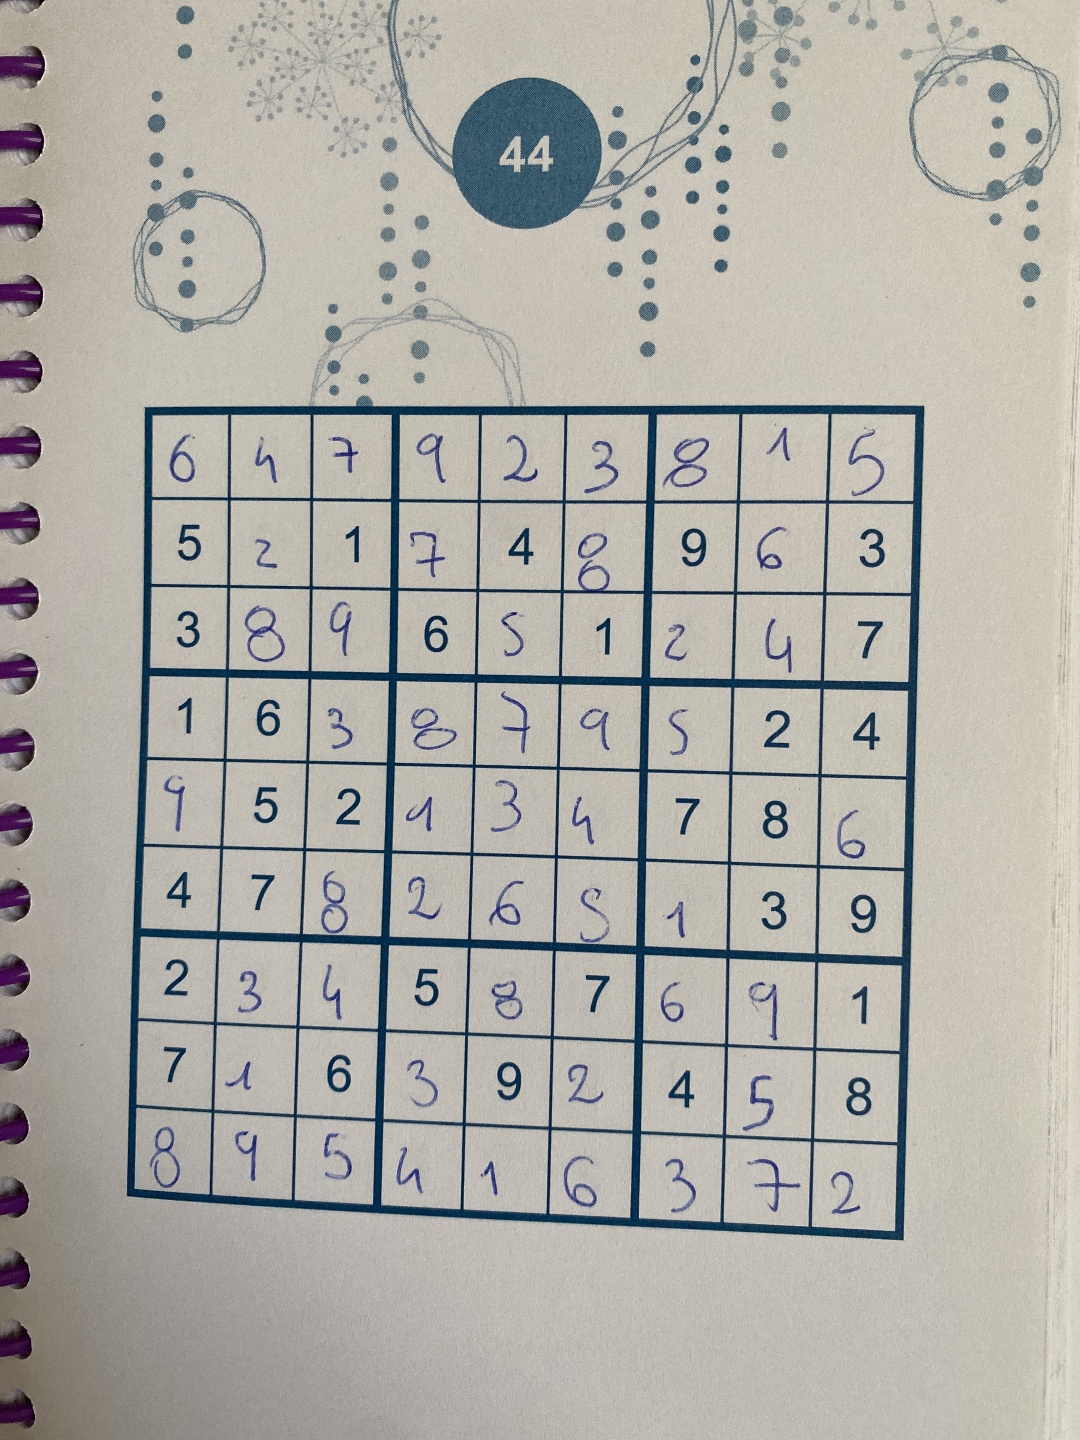 44
6 4 7 9 2 3 8 1 5
5 2 1 7 4 8 9 6 3
3 8 9 6 5 1 2 4 7
1 6 3 8 7 9 5 2 4
9 5 2 1 3 4 7 8 6
4 7 8 2 6 5 1 3 9
2 3 4 5 8 7 6 9 1
7 1 6 3 9 2 4 5 8
8 9 5 4 1 6 3 7 2